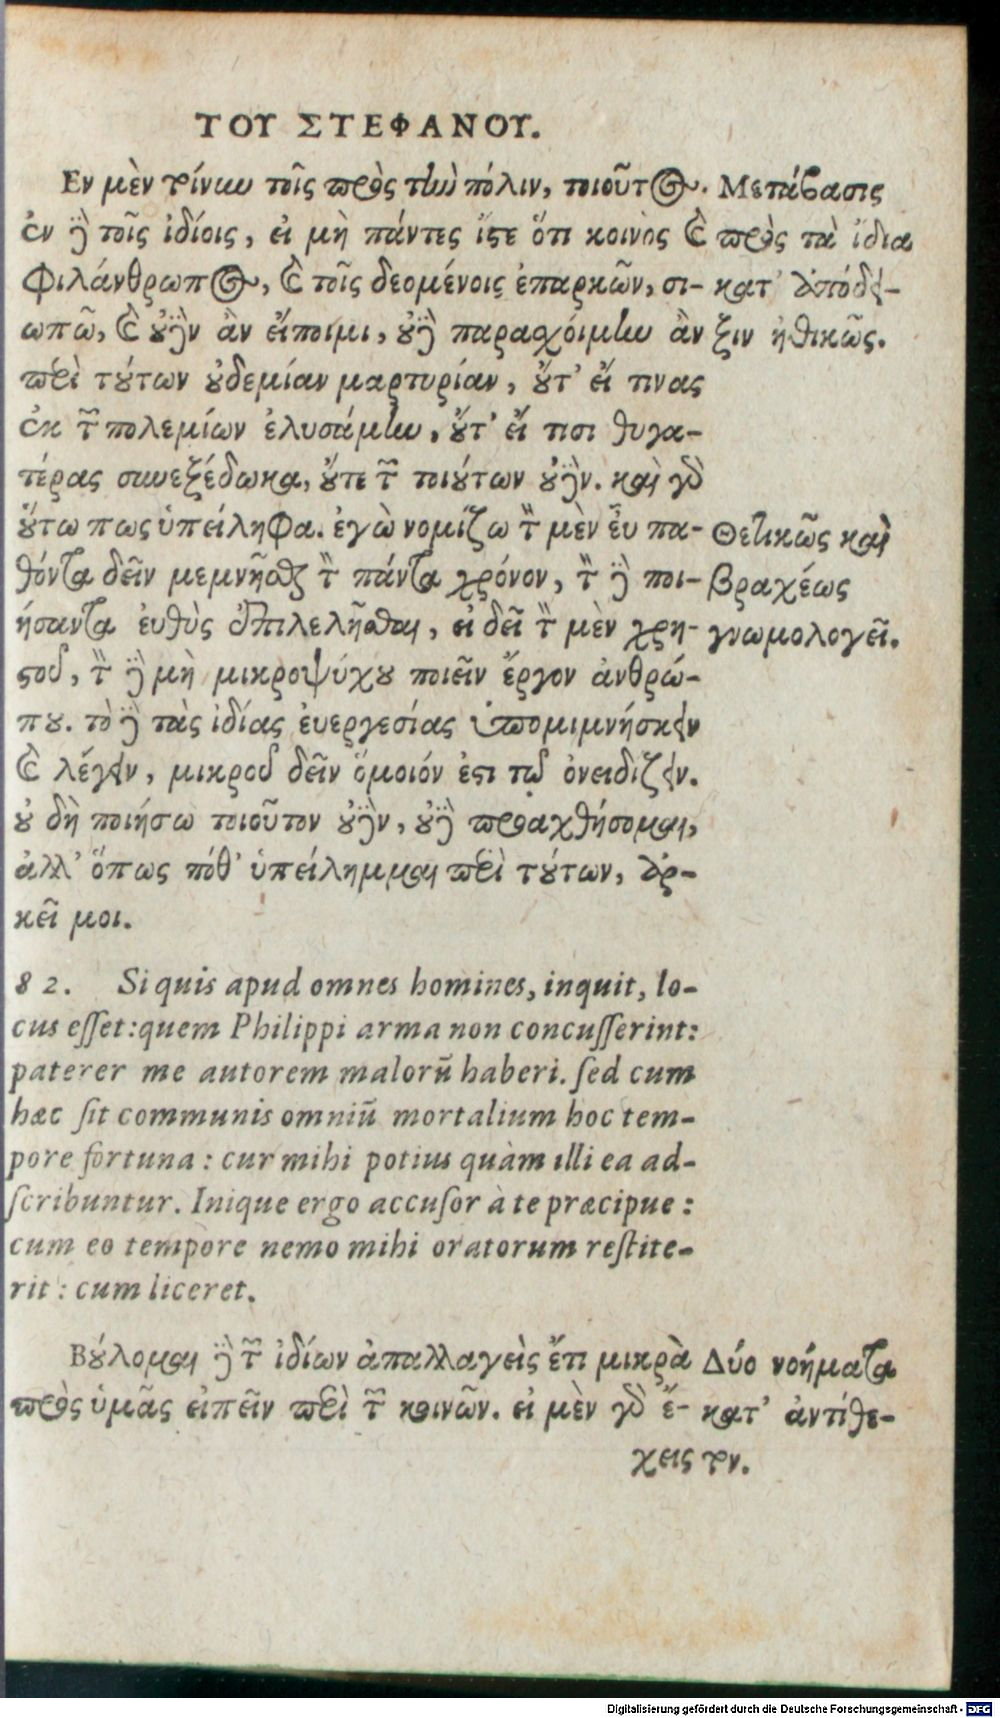 ΤΟΥ ΣΤΕΦΑΝΟΥ.
Εν μὲν τοίνυν τοῖς πρὸς τὴν πόλιν, τοιοῦτος.
ἐν δὲ τοῖς ἰδίοις, εἰ μὴ πάντες ἴστε ὅτι κοινὸς καὶ
φιλάνθρωπος, καὶ τοῖς δεομένοις ἐπαρκῶν, σι-
ωπῶ, καὶ οὐδὲν ἂν εἴποιμι, οὐδὲ παρασχοίμην ἂν
περὶ τούτων οὐδεμίαν μαρτυρίαν, οὔτ' εἴ τινας
ἐκ τῶν πολεμίων ἐλυσάμην, οὔτ' εἴ τισι θυγα-
τέρας συνεξέδωκα, οὔτε τῶν τοιούτων οὐδὲν. καὶ γὰρ
οὕτω πως ὑπείληφα. ἐγὼ νομίζω τὸν μὲν εὖ πα-
θόντα δεῖν μεμνῆσθαι τὸν πάντα χρόνον, τὸν δὲ ποι-
ήσαντα εὐθὺς ἐπιλελῆσθαι, εἰ δεῖ τὸν μὲν χρη-
στοῦ, τὸν δὲ μὴ μικροψύχου ποιεῖν ἔργον ἀνθρώ-
που. τὸ δὲ τὰς ἰδίας εὐεργεσίας ὑπομιμνήσκειν
καὶ λέγειν, μικροῦ δεῖν ὅμοιόν ἐστι τῷ ὀνειδίζειν.
οὐ δὴ ποιήσω τοιοῦτον οὐδὲν, οὐδὲ προαχθήσομαι,
ἀλλ' ὅπως πόθ' ὑπείλημμαι περὶ τούτων, ἀρ-
κεῖ μοι.
Μετάβασις
πρὸς τὰ ἴδια
κατ' ἀπόδει-
ξιν ἠθικῶς.
Θετικῶς καὶ
βραχέως
γνωμολογεῖ.
82. Si quis apud omnes homines, inquit, lo-
cus esset: quem Philippi arma non concusserint:
paterer me autorem malorū haberi. sed cum
hæc sit communis omniū mortalium hoc tem-
pore fortuna: cur mihi potius quàm illi ea ad-
scribuntur. Inique ergo accusor à te præcipue:
cum eo tempore nemo mihi oratorum restite-
rit: cum liceret.
Βούλομαι δὲ τῶν ἰδίων ἀπαλλαγεὶς ἔτι μικρὰ
πρὸς ὑμᾶς εἰπεῖν περὶ τῶν κοινῶν. εἰ μὲν γὰρ ἔ-
χεις
Δύο νοήματα
κατ' ἀντίθε-
τον.